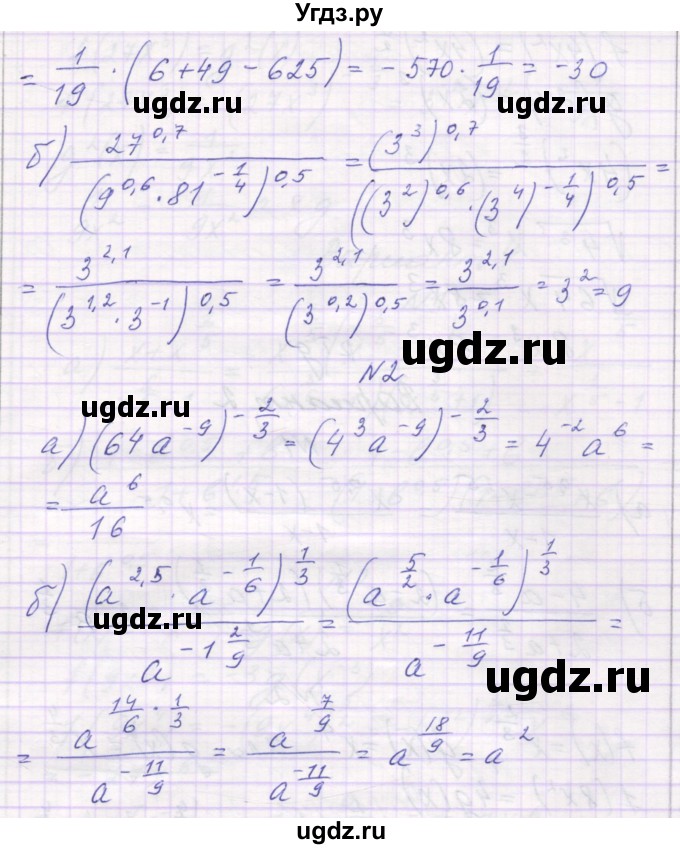 Угдз.ру
= 1/19 · (6+49-625) = -570 · 1/19 = -30
ugdz.ru ugdz.ru
б) 27^0,7 / (9^0,6 · 81^(-1/4))^0,5 = (3^3)^0,7 / ((3^2)^0,6 · (3^4)^(-1/4))^0,5 =
= 3^2,1 / (3^1,2 · 3^-1)^0,5 = 3^2,1 / (3^0,2)^0,5 = 3^2,1 / 3^0,1 = 3^2 = 9
ugdz.ru
N2
ugdz.ru
а) (64a^-9)^(-2/3) = (4^3 a^-9)^(-2/3) = 4^-2 a^6 =
= a^6 / 16
б) (a^2,5 · a^(-1/6))^(1/3) / a^(-1 2/9) = (a^(5/2) · a^(-1/6))^(1/3) / a^(-11/9) =
ugdz.ru
ugdz.ru
= a^(14/6 · 1/3) / a^(-11/9) = a^(7/9) / a^(-11/9) = a^(18/9) = a^2
ugdz.ru